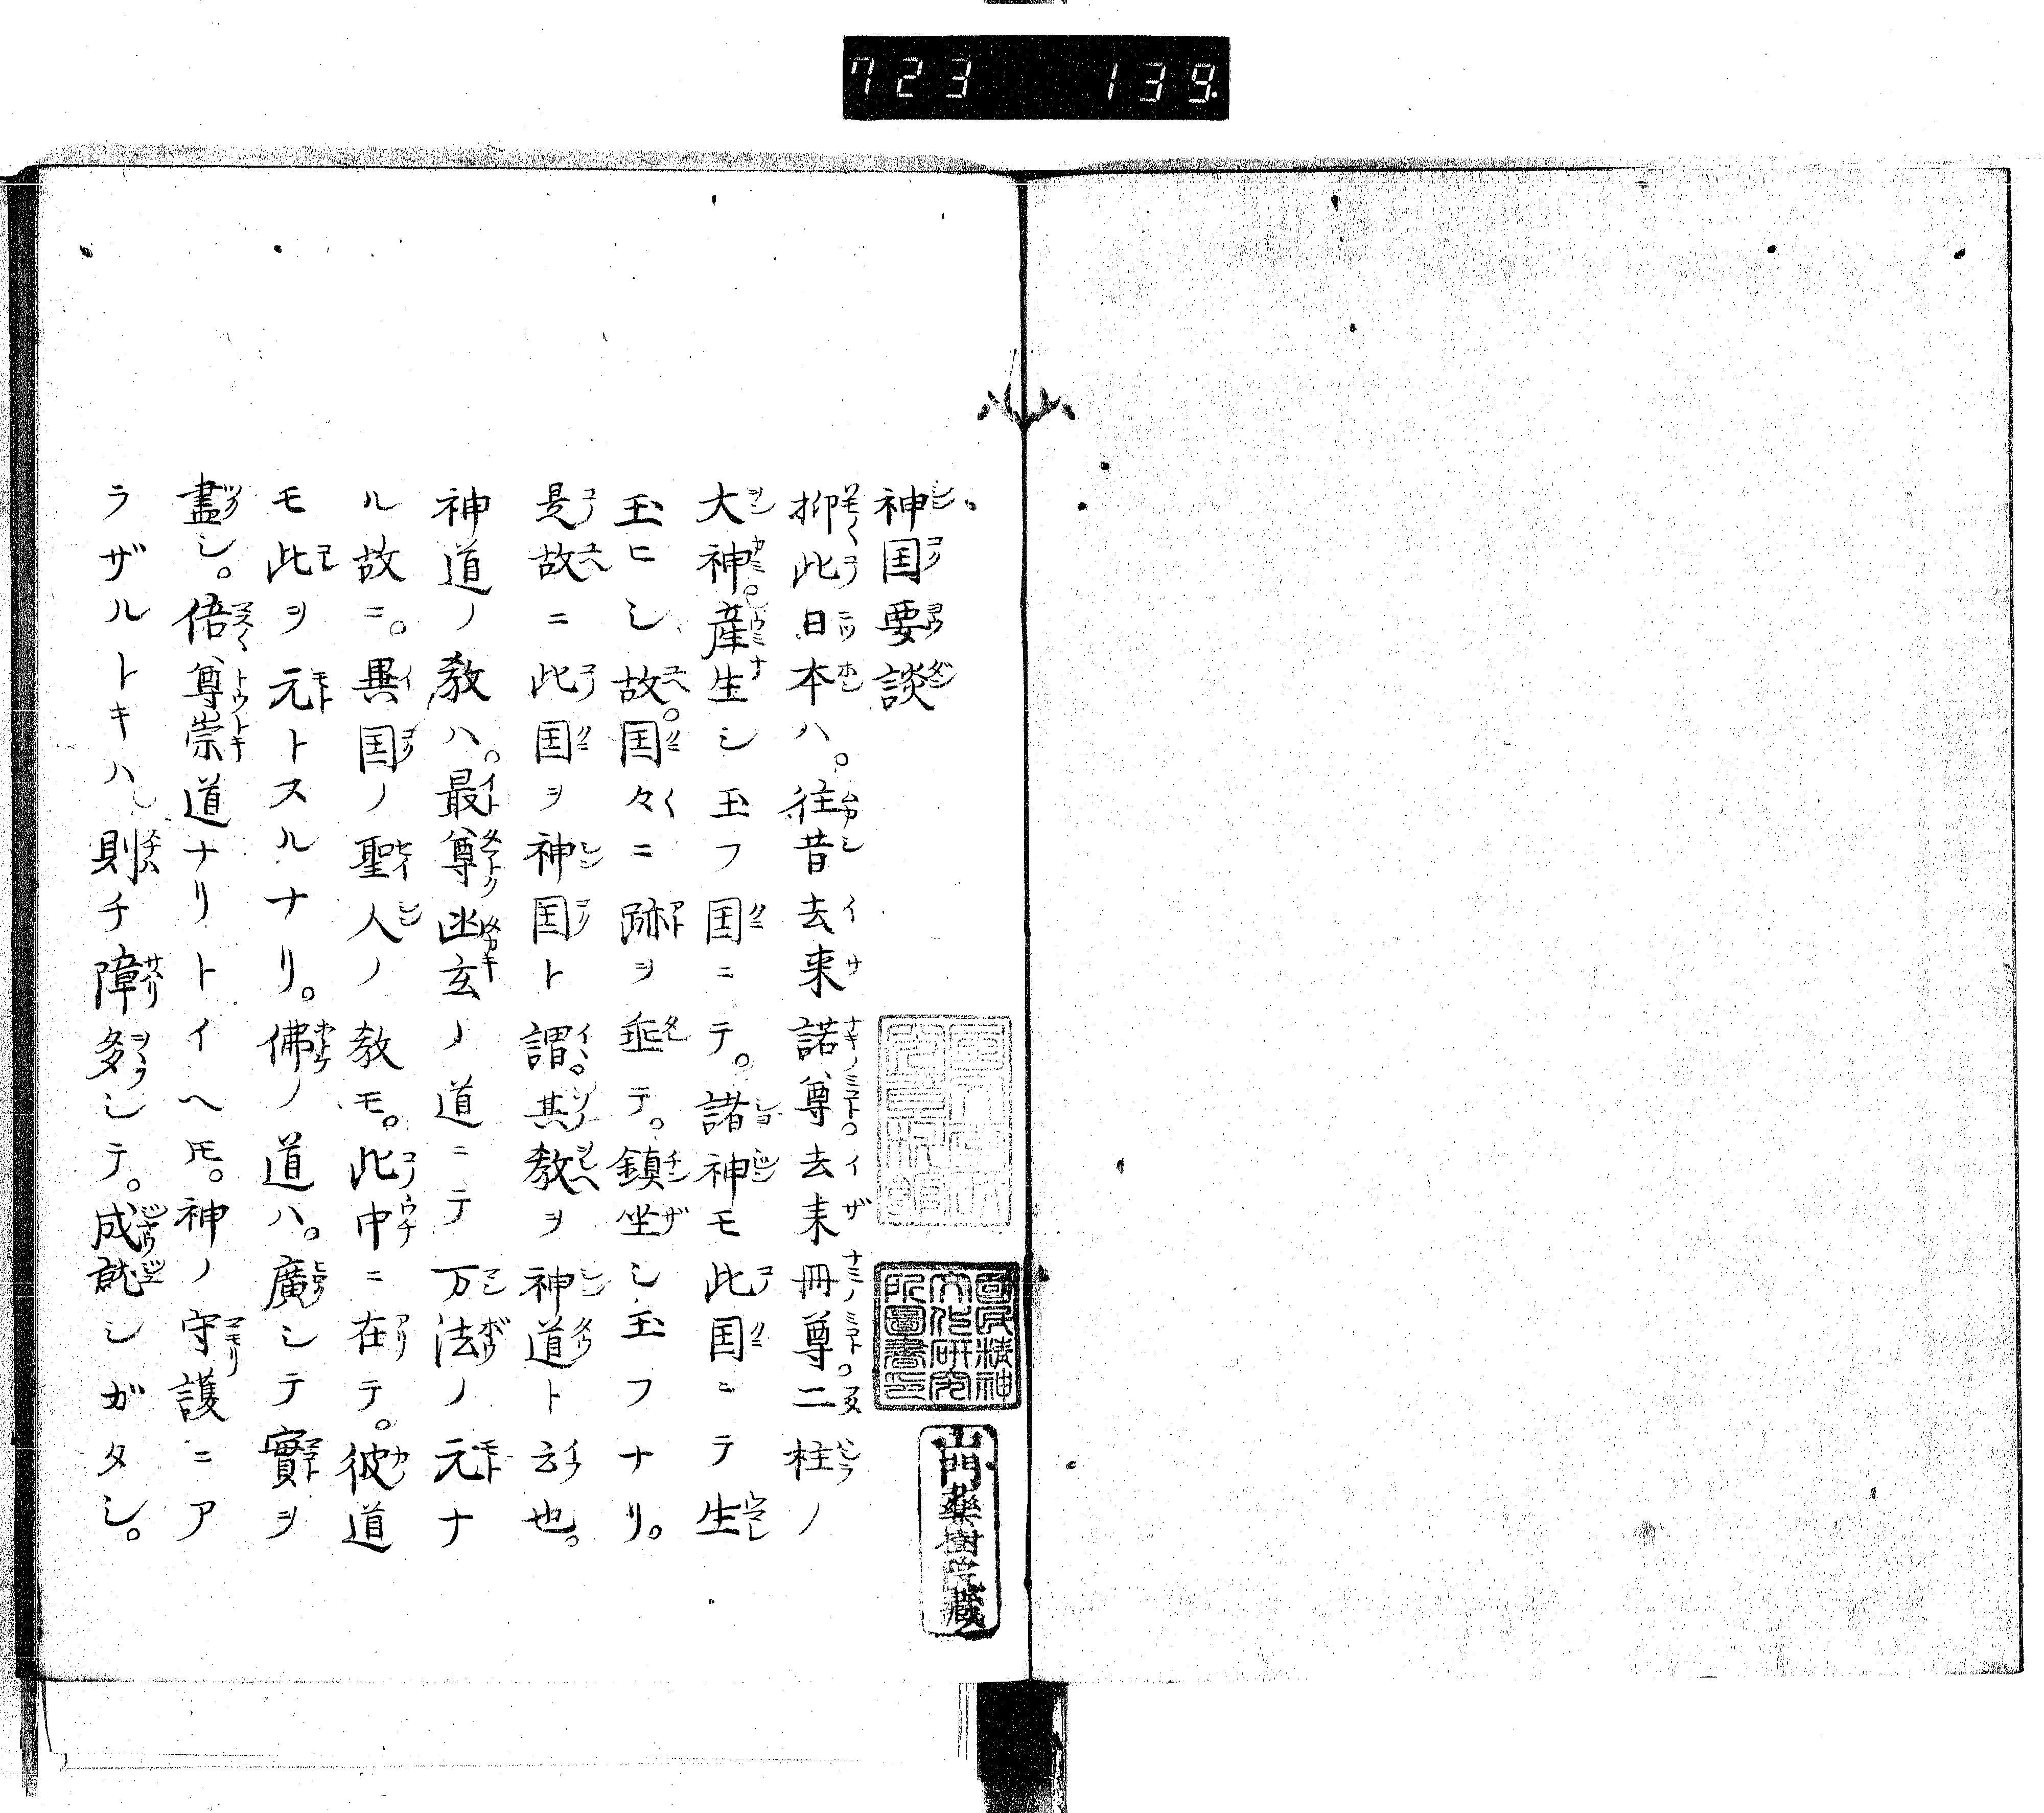 723 139.
神国要談
抑此日本ハ。往昔去来諾尊。去来冊尊。二柱ノ
大神。産生シ玉フ国ニテ。諸神モ此国ニテ生
玉ヒシ故。国々ニ跡ヲ垂テ。鎮坐シ玉フナリ。
是故ニ此国ヲ神国ト謂。其教ヲ神道ト云也。
神道ノ教ハ。最尊幽玄ノ道ニテ万法ノ元ナ
ル故ニ。異国ノ聖人ノ教モ。此中ニ在テ。彼道
モ此ヲ元トスルナリ。佛ノ道ハ。廣シテ實ヲ
盡シ。倍尊崇道ナリトイヘ𪜈。神ノ守護ニア
ラザルトキハ、則チ障多シテ。成就シガタシ。
國民精神
文化研究
所圖書印
山門藥樹院藏